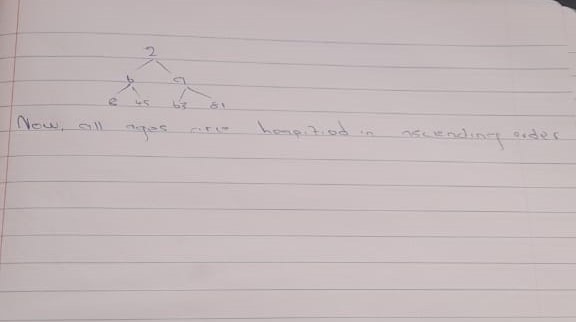 2
6 9
8 45 63 81
Now, all ages are heapified in ascending order